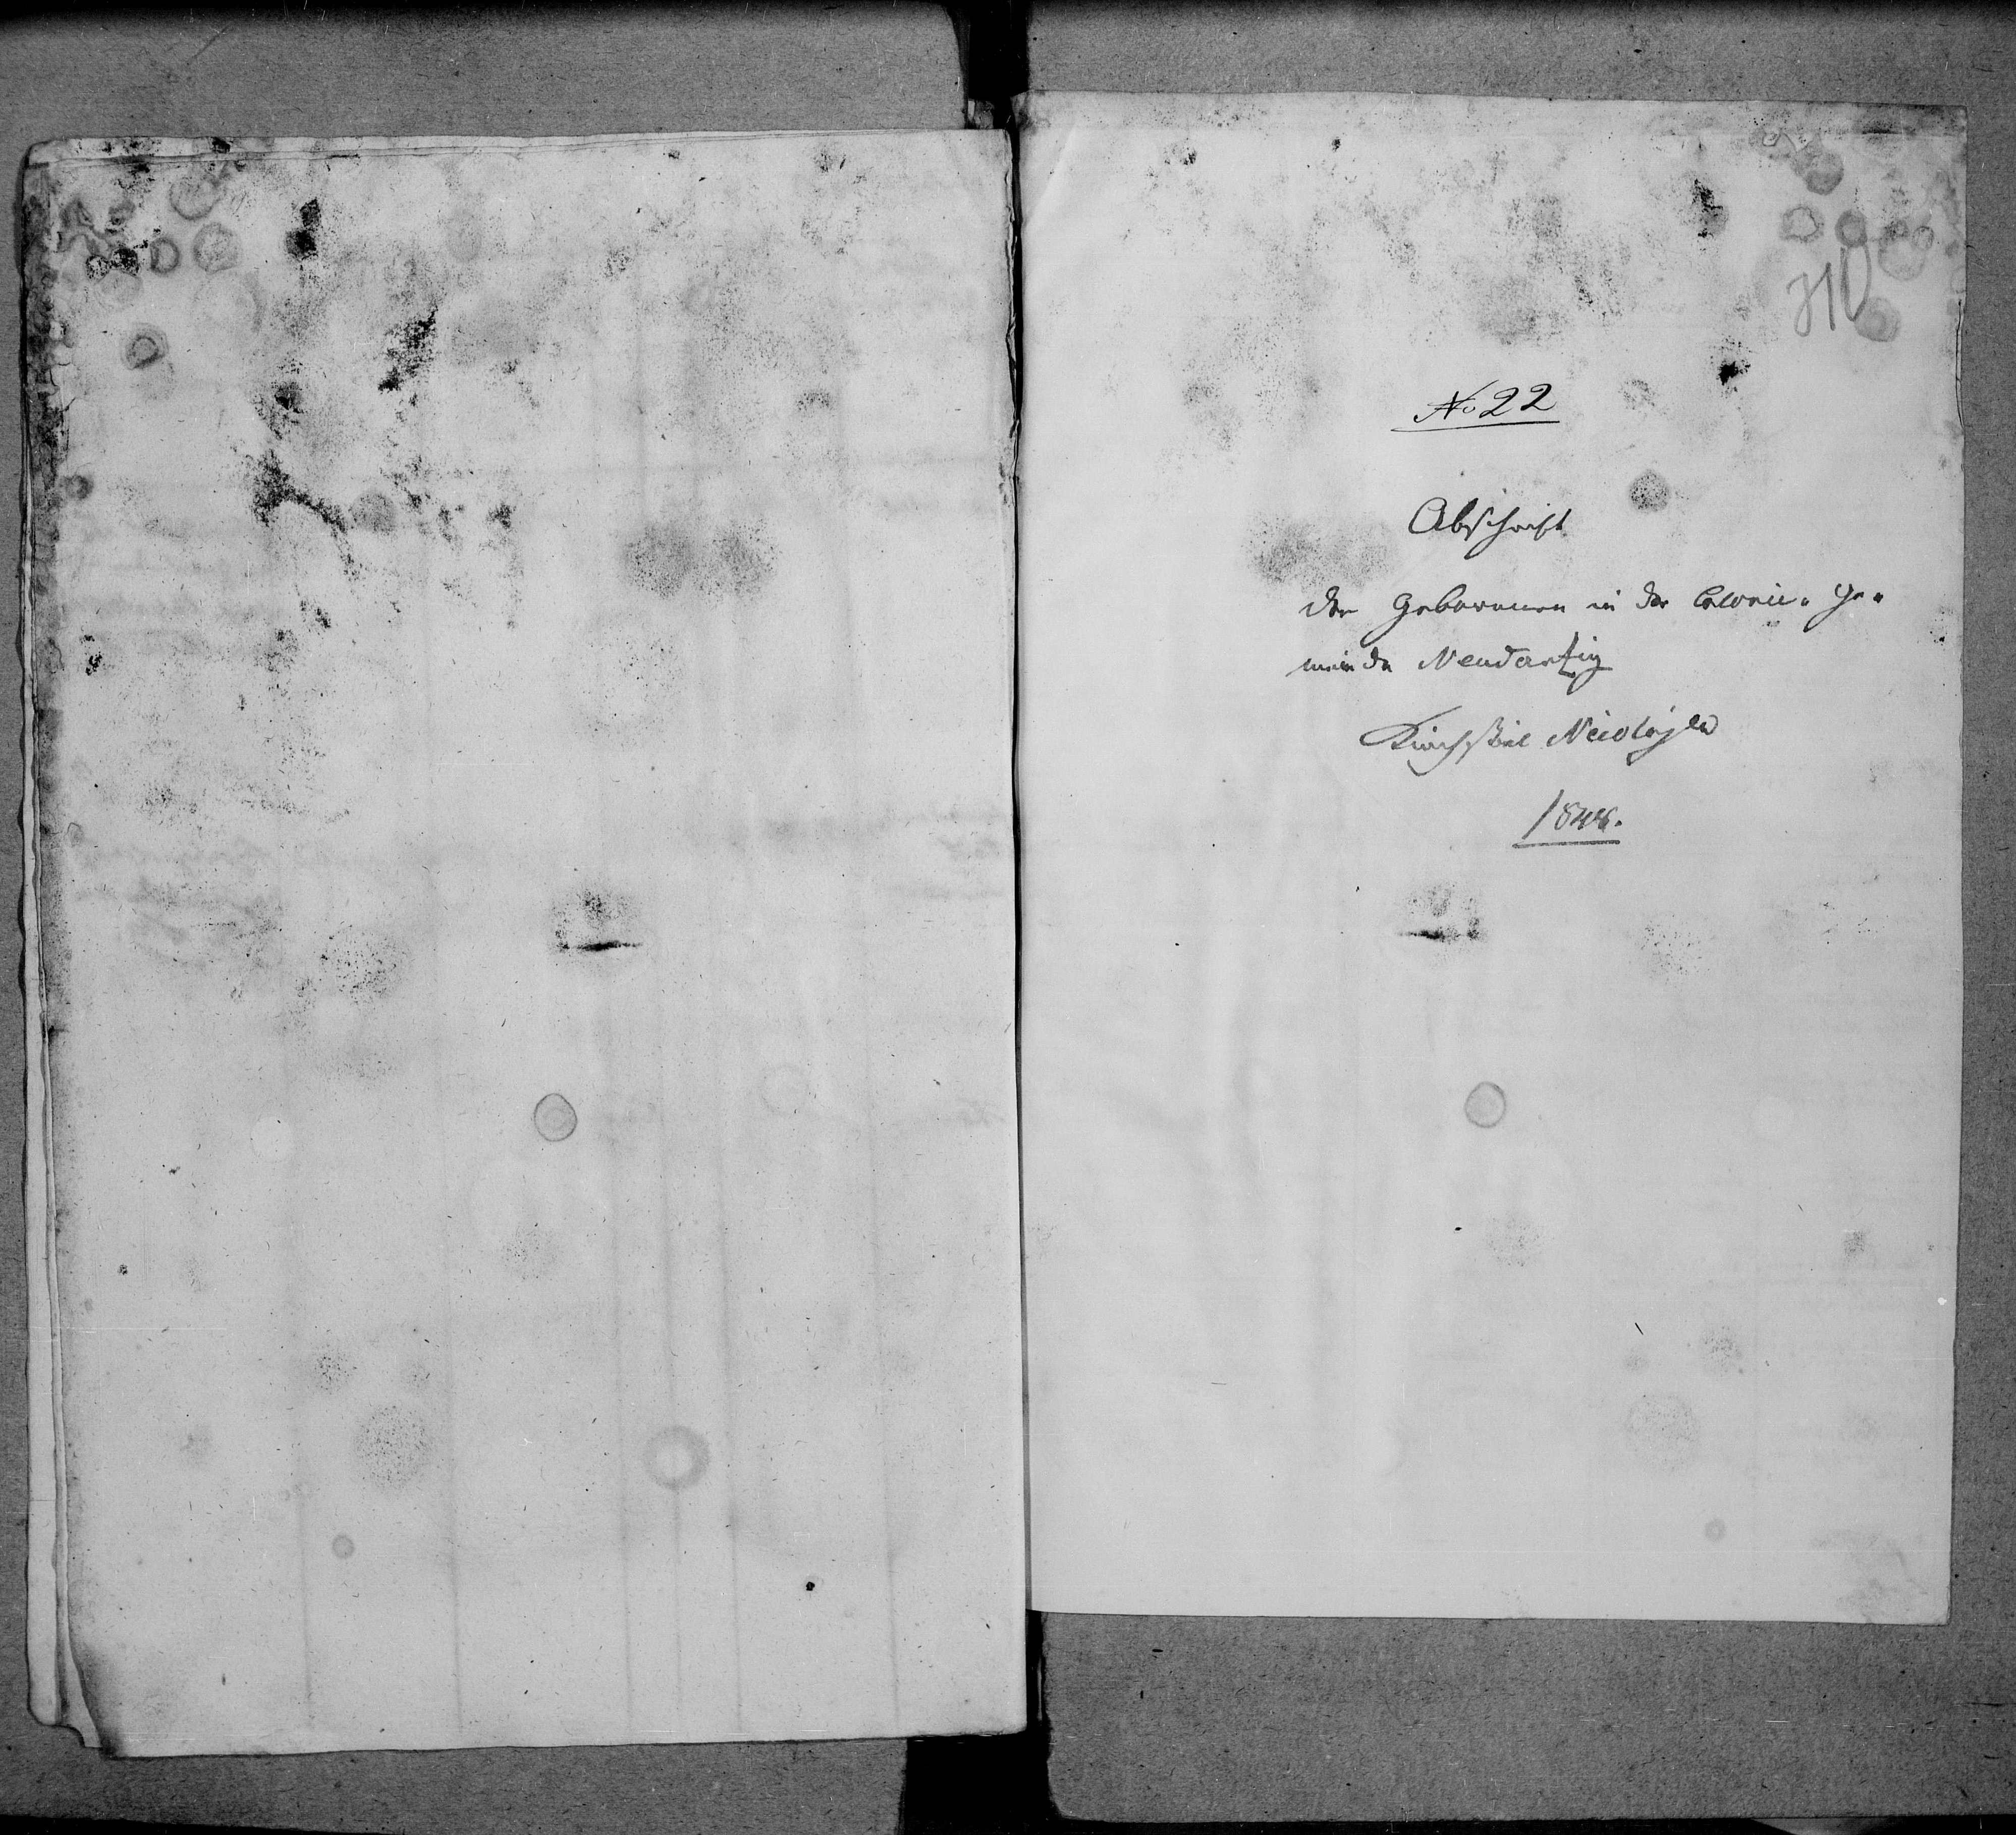 310
No 22
Abschrift
der Geborenen in der Colonie-Ge-
meinde Neudanzig
Kirchspiel
1848.